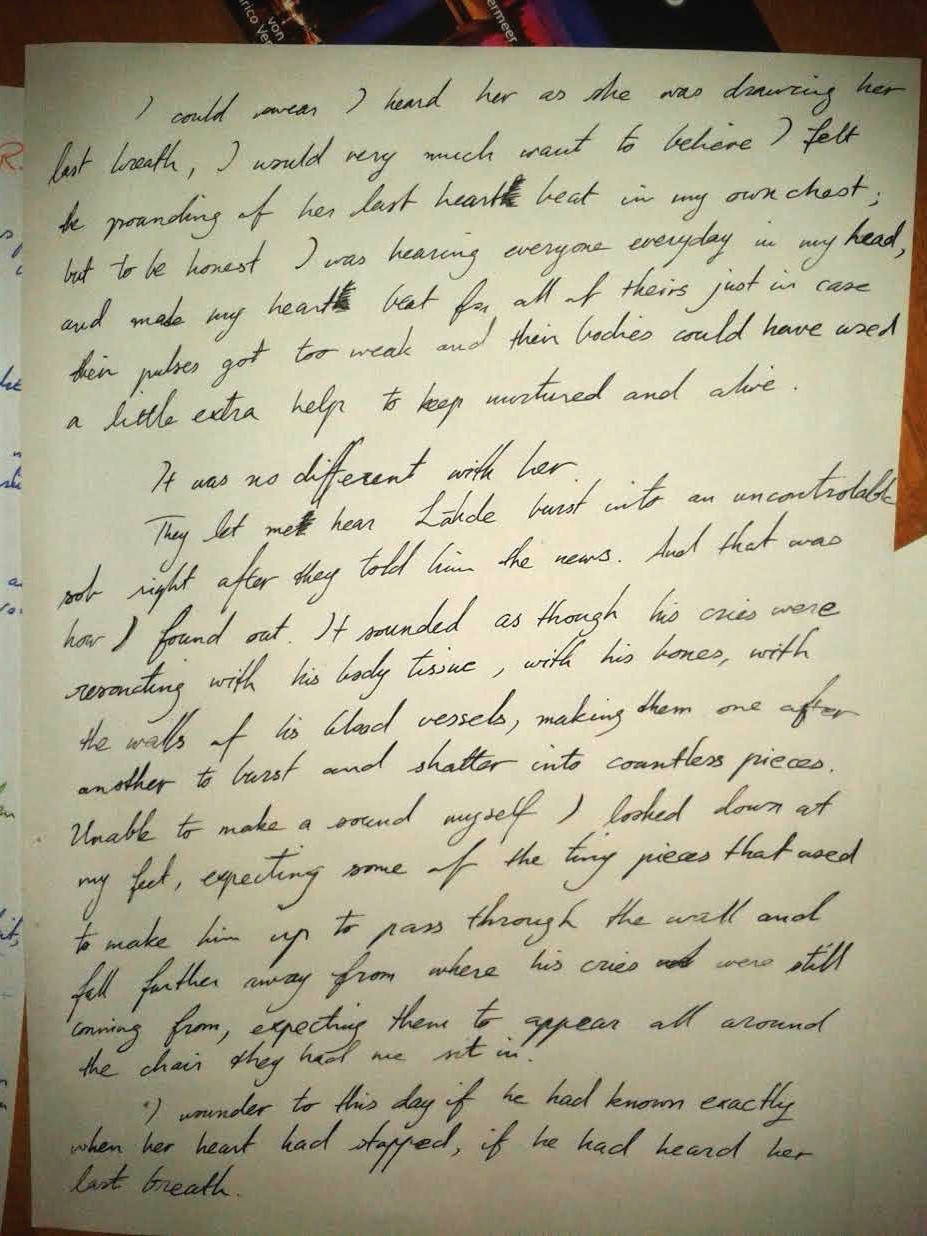 rico Ver
von
ermeer
R.
I could swear I heard her as she was drawing her
last breath, I would very much want to believe I felt
he pounding of her last heart beat in my own chest;
but to be honest I was hearing everyone everyday in my head,
and made my heart beat for all of theirs just in case
their pulses got too weak and their bodies could have used
a little extra help to keep nurtured and alive.
It was no different with her.
They let me hear Lähde burst into an uncontrolable
sob right after they told him the news. And that was
how I found out. It sounded as though his cries were
resonating with his body tissue, with his bones, with
the walls of his blood vessels, making them one after
another to burst and shatter into countless pieces.
Unable to make a sound myself I looked down at
my feet, expecting some of the tiny pieces that used
to make him up to pass through the wall and
fall further away from where his cries were still
coming from, expecting them to appear all around
the chair they had me sit in.
I wounder to this day if he had known exactly
when her heart had stopped, if he had heard her
last breath.